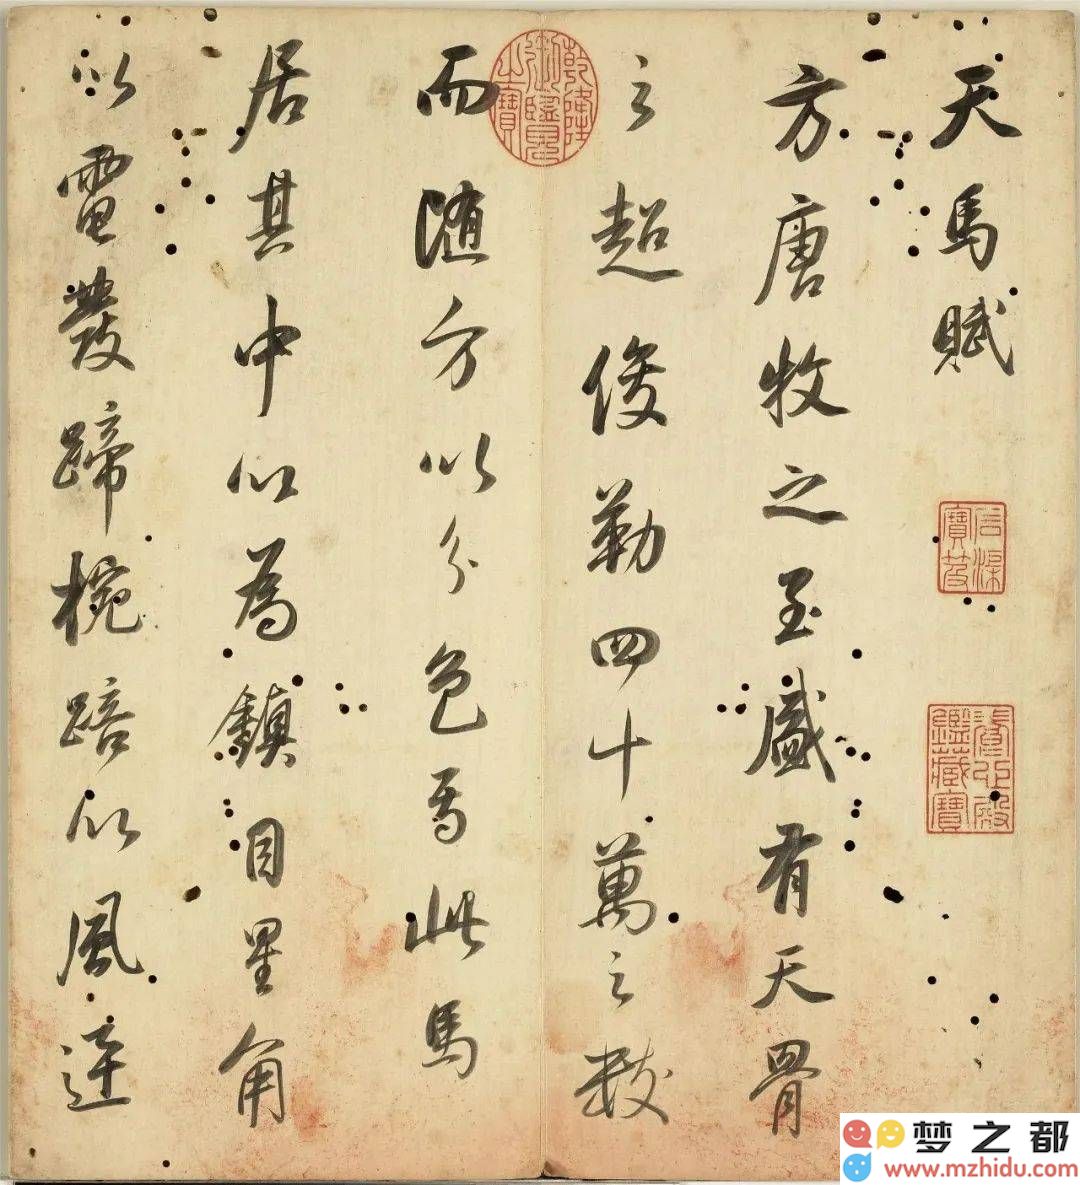 天馬賦
石渠寶笈
養心殿鑑藏寶
方唐牧之至盛有天骨
之超俊勒四十萬之數
乾隆御覽之寶
而隨方以分色焉此馬
居其中以為鎮目星角
以電發蹄椀踣以風迸
梦之都
www.mzhidu.com